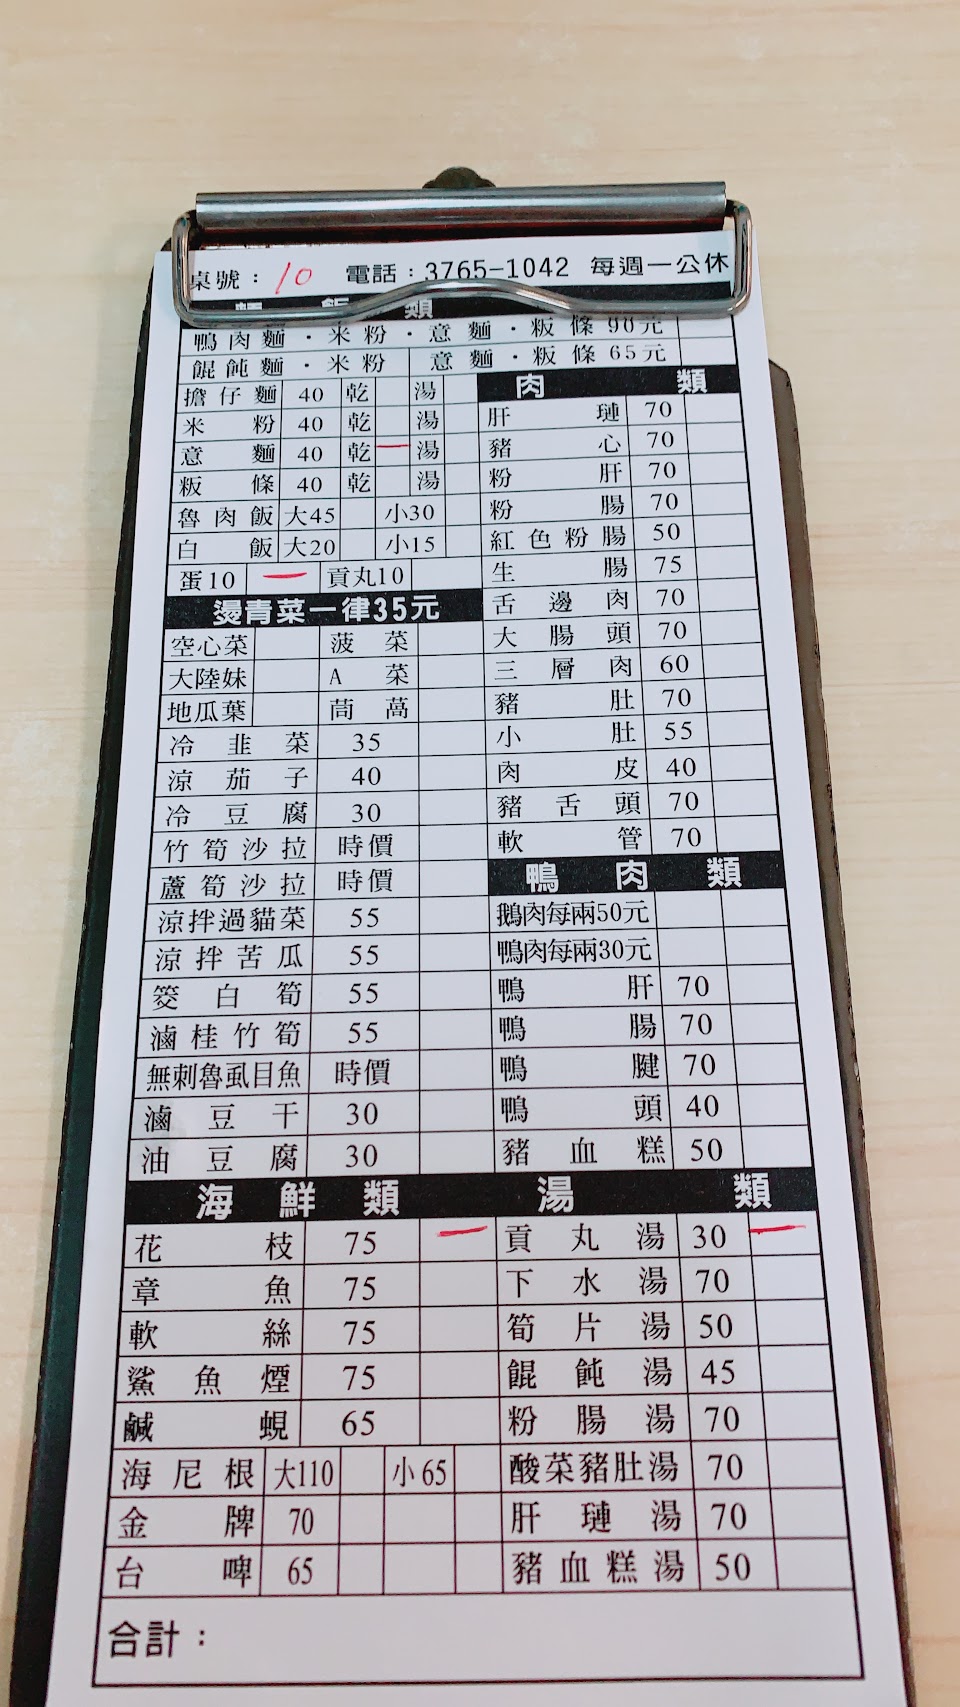 桌號：10 電話：3765-1042 每週一公休
麵 飯 類
鴨肉麵・米粉・意麵・粄條 90元
餛飩麵・米粉 意麵・粄條 65元
擔仔麵 40 乾 湯
米粉 40 乾 湯
意麵 40 乾 一 湯
粄條 40 乾 湯
魯肉飯 大45 小30
白飯 大20 小15
蛋10 一 貢丸10
燙青菜一律35元
空心菜 菠菜
大陸妹 A菜
地瓜葉 茼萵
冷韭菜 35
涼茄子 40
冷豆腐 30
竹筍沙拉 時價
蘆筍沙拉 時價
涼拌過貓菜 55
涼拌苦瓜 55
筊白筍 55
滷桂竹筍 55
無刺魯虱目魚 時價
滷豆干 30
油豆腐 30
肉 類
肝璉 70
豬心 70
粉肝 70
粉腸 70
紅色粉腸 50
生腸 75
舌邊肉 70
大腸頭 70
三層肉 60
豬肚 70
小肚 55
肉皮 40
豬舌頭 70
軟管 70
鴨 肉 類
鵝肉每兩50元
鴨肉每兩30元
鴨肝 70
鴨腸 70
鴨腱 70
鴨頭 40
豬血糕 50
海 鮮 類
花枝 75 一
章魚 75
軟絲 75
鯊魚煙 75
鹹蜆 65
海尼根 大110 小65
金牌 70
台啤 65
湯 類
貢丸湯 30 一
下水湯 70
筍片湯 50
餛飩湯 45
粉腸湯 70
酸菜豬肚湯 70
肝璉湯 70
豬血糕湯 50
合計：